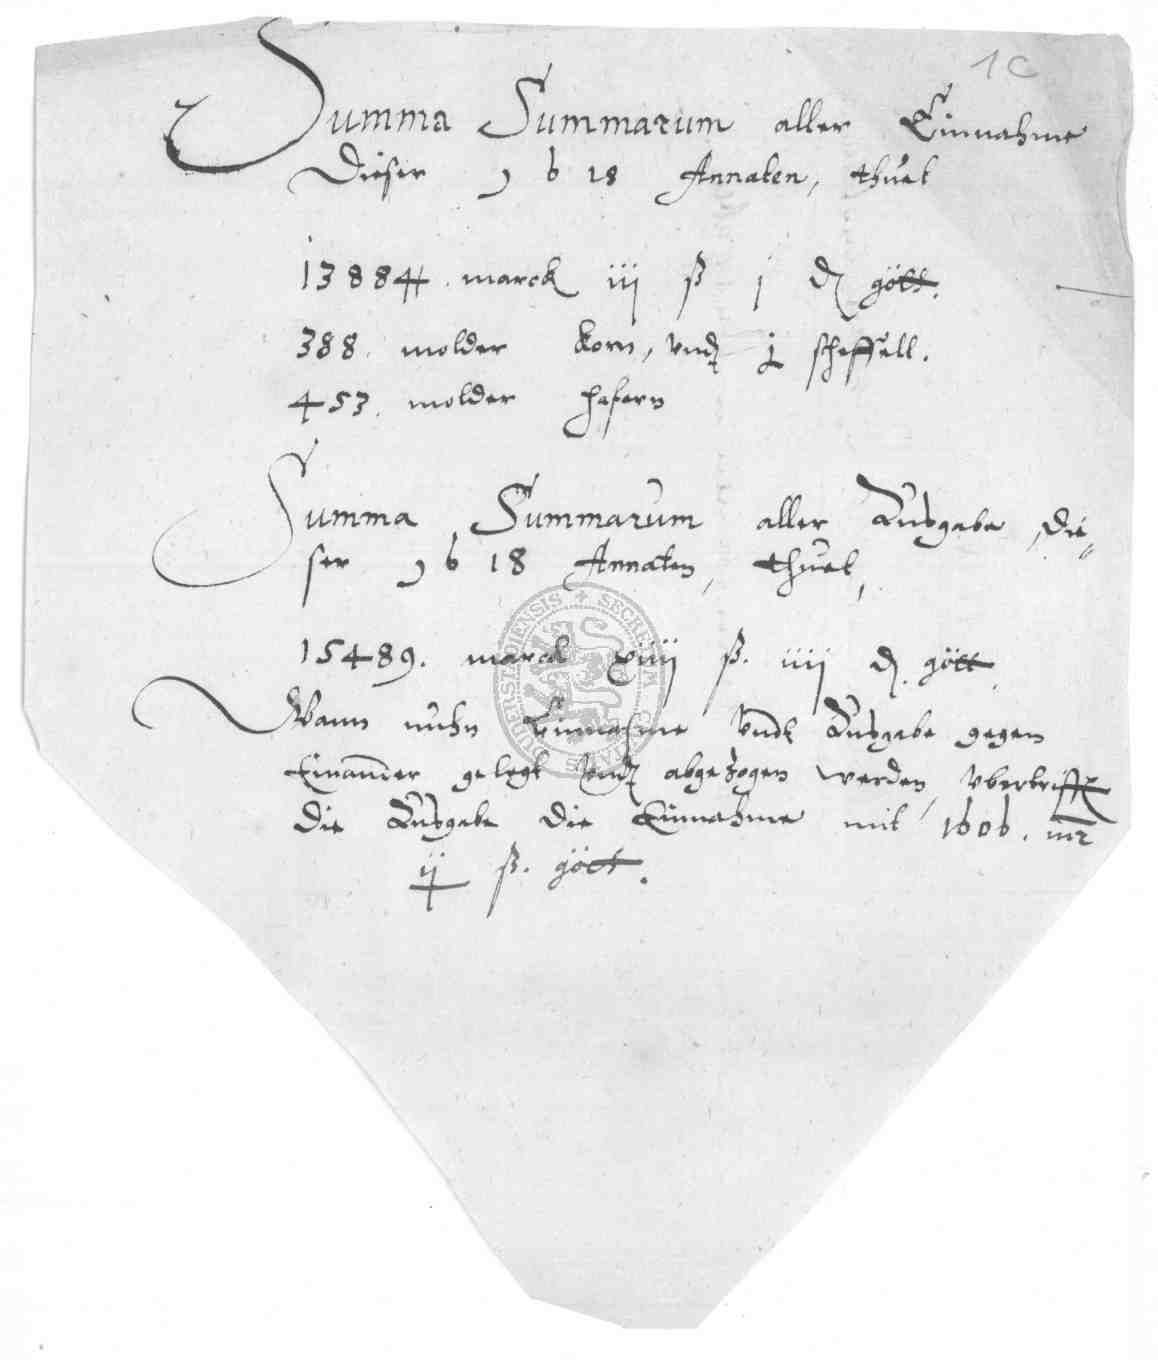 1C
Summa Summarum aller Einnahme
Dieser 1618 Annaten, thuet
13884. marck iij ß j d gött.
388. molder korn, vnd j scheffell.
453. molder hafern
Summa Summarum aller Ausgabe, die=
ser 1618 Annaten, thuet,
15489. marck xiiij ß. iiij d. gött.
Wann nuhn Einnahme Vndt Ausgabe gegen
Einander gelegt Vnd abgezogen werden, vbertrifft
die Ausgabe die Einnahme mit 1606. mr
ij ß. gött.
SECRETUM DUDERSTADIENSIS